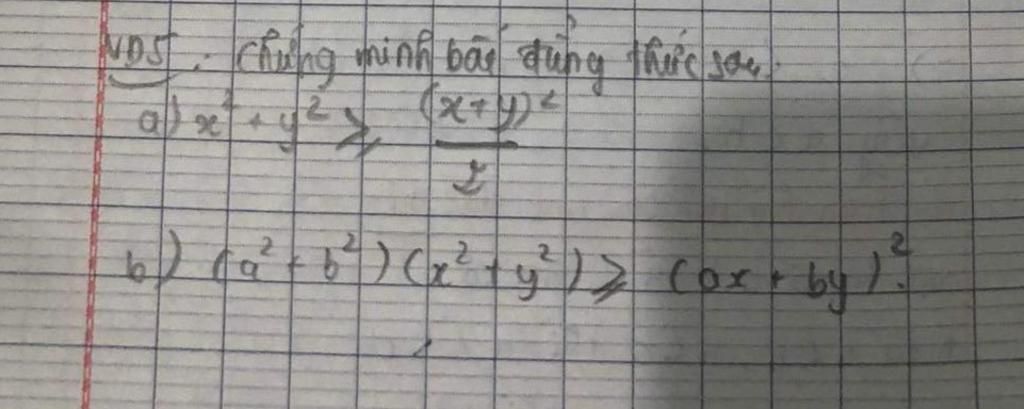 VD5. chứng minh bất đẳng thức sau.
a) x² + y² ≥ (x+y)² / 2
b) (a² + b²)(x² + y²) ≥ (ax + by)².